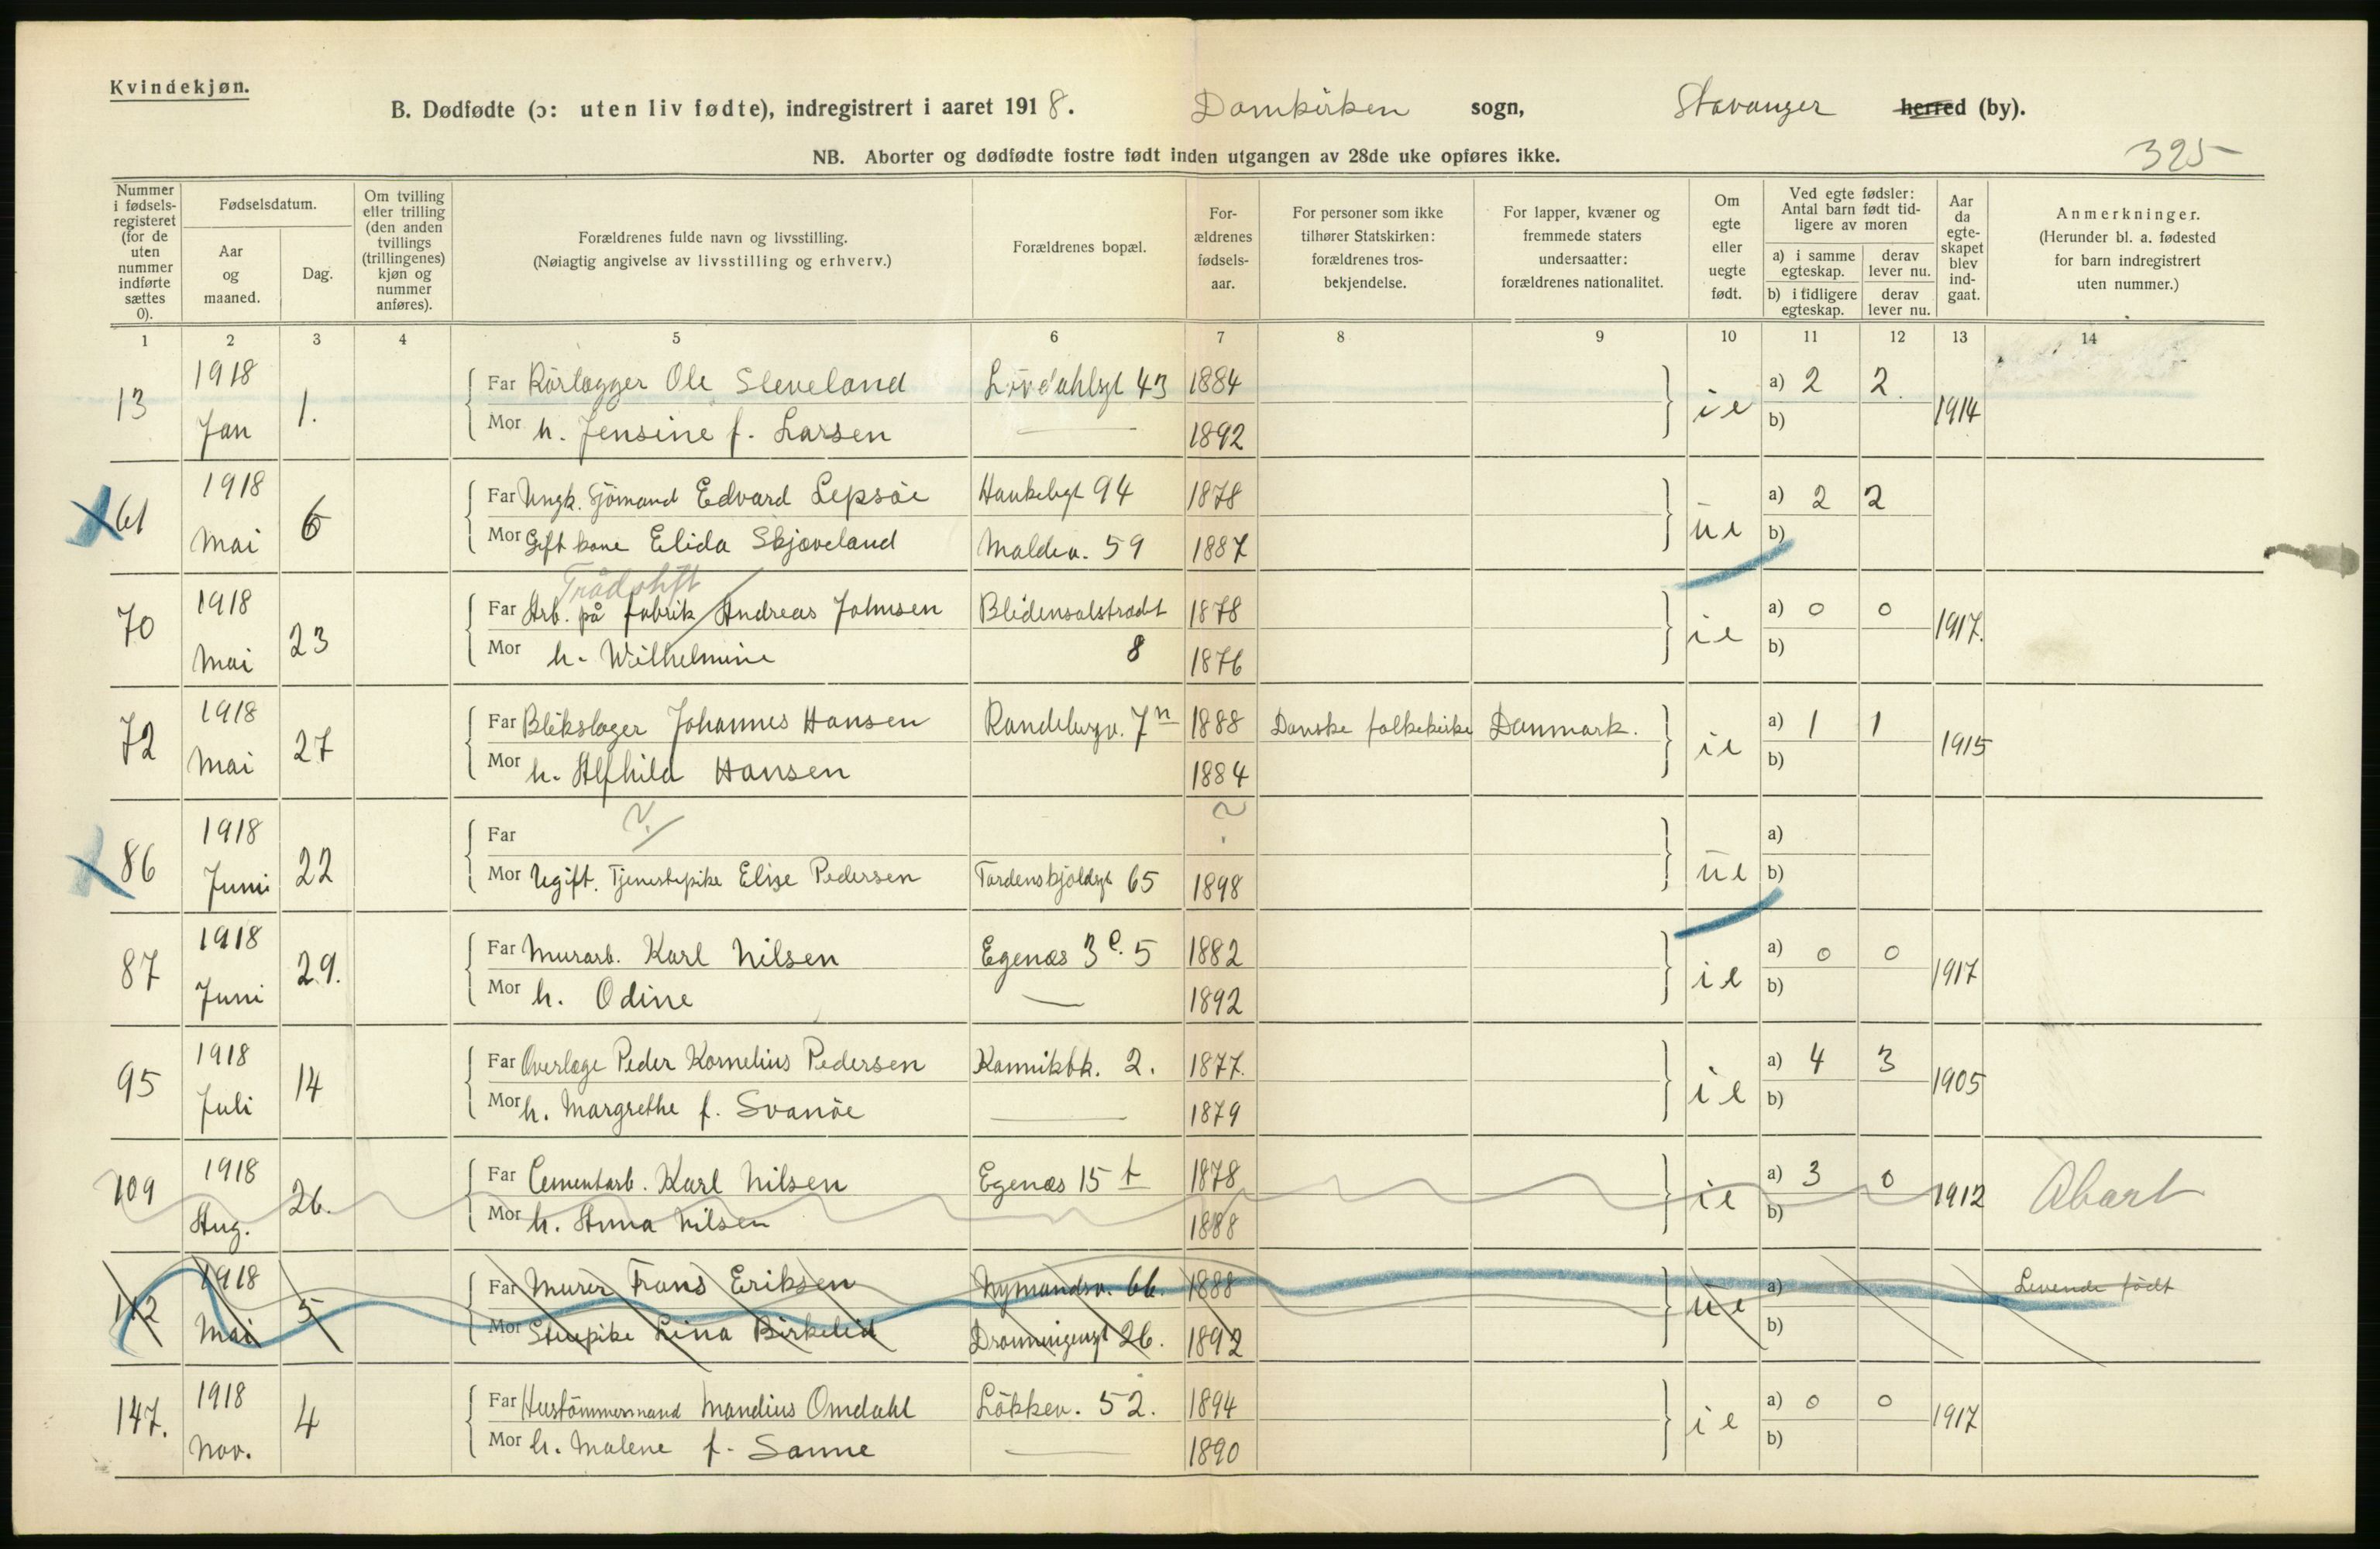 Kvindekjøn.
B. Dødfødte (ɔ: uten liv fødte), indregistrert i aaret 1918. Domkirken sogn, Stavanger herred (by).
NB. Aborter og dødfødte fostre født inden utgangen av 28de uke opføres ikke.
325
Nummer i fødsels-registeret (for de uten nummer indførte sættes 0).
Fødselsdatum.
Aar og maaned.
Dag.
Om tvilling eller trilling (den anden tvillings (trillingenes) kjøn og nummer anføres).
Forældrenes fulde navn og livsstilling.
(Nøiagtig angivelse av livsstilling og erhverv.)
Forældrenes bopæl.
For-ældrenes fødsels-aar.
For personer som ikke tilhører Statskirken: forældrenes tros-bekjendelse.
For lapper, kvæner og fremmede staters undersaatter: forældrenes nationalitet.
Om egte eller uegte født.
Ved egte fødsler: Antal barn født tid-ligere av moren
a) i samme egteskap.
derav lever nu.
b) i tidligere egteskap.
derav lever nu.
Aar da egte-skapet blev ind-gaat.
Anmerkninger.
(Herunder bl. a. fødested for barn indregistrert uten nummer.)
1 2 3 4 5 6 7 8 9 10 11 12 13 14
13 1918 Jan 1.
Far Rörlægger Ole Sleveland Lövdahlsgt 43 1884
Mor h. Jensine f. Larsen — 1892
ie a) 2 2. b) 1914
61 1918 Mai 6
Far Ungk. Sjömand Edvard Lepsöe Haukeligt 94 1878
Mor Gift kone Elida Skjæveland Maldev. 59 1887
ue a) 2 2 b)
70 1918 Mai 23
Trådstift
Far Arb. på fabrik Andreas Johnsen Blidensolstrædt 1878
Mor h. Wilhelmine 8 1876
ie a) 0 0 b) 1917.
72 1918 Mai 27
Far Blikslager Johannes Hansen Randebergv. 7n 1888 Danske folkekirke Danmark.
Mor h. Alfhild Hansen 1884
ie a) 1 1 b) 1915
86 1918 Juni 22
Far ? ?
Mor Ugift. Tjenestepike Elise Pedersen Tordenskjoldsgt 65 1898
ue a) b)
87 1918 Juni 29.
Far Murarb. Karl Nilsen Egenæs 3 e. 5 1882
Mor h. Odine — 1892
ie a) 0 0 b) 1917
95 1918 Juli 14
Far Overlæge Peder Kornelius Pedersen Kannikbk. 2. 1877.
Mor h. Margrethe f. Svanöe — 1879
ie a) 4 3 b) 1905
109 1918 Aug. 26.
Far Cementarb. Karl Nilsen Egenæs 15 t 1878
Mor h. Anna Nilsen 1888
ie a) 3 0 b) 1912 Abort
112 1918 Mai 5
Far Murer Frans Eriksen Nymandsv. 66. 1888
Mor Stuepike Lina Birkelid Dronningensgt 26. 1892
ue a) b) Levende födt
147. 1918 Nov. 4
Far Hustömmermand Mandius Omdahl Lökkev. 52. 1894
Mor h. Malene f. Sanne — 1890
ie a) 0 0 b) 1917